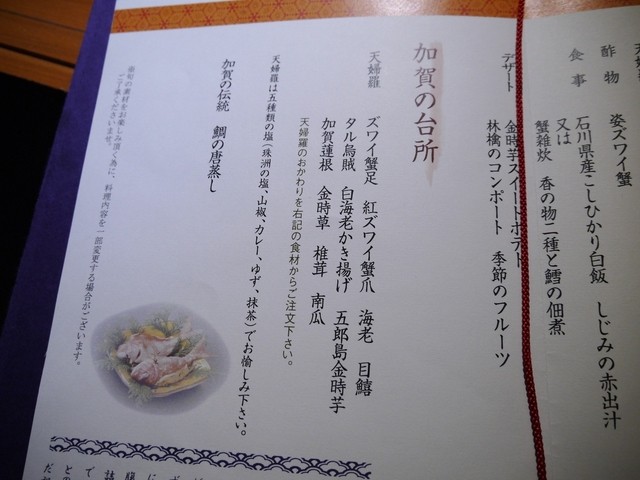 酢物 姿ズワイ蟹
食事 石川県産こしひかり白飯 しじみの赤出汁
又は
蟹雑炊 香の物二種と鱈の佃煮
デザート 金時芋スイートポテト
林檎のコンポート 季節のフルーツ
加賀の台所
天婦羅 ズワイ蟹足 紅ズワイ蟹爪 海老 目鱚
タル烏賊 白海老かき揚げ 五郎島金時芋
加賀蓮根 金時草 椎茸 南瓜
天婦羅のおかわりを右記の食材からご注文下さい。
天婦羅は五種類の塩(珠洲の塩、山椒、カレー、ゆず、抹茶)でお愉しみ下さい。
加賀の伝統 鯛の唐蒸し
旬の素材をお楽しみ頂く為に、料理内容を一部変更する場合がございます。
ご了承くださいませ。